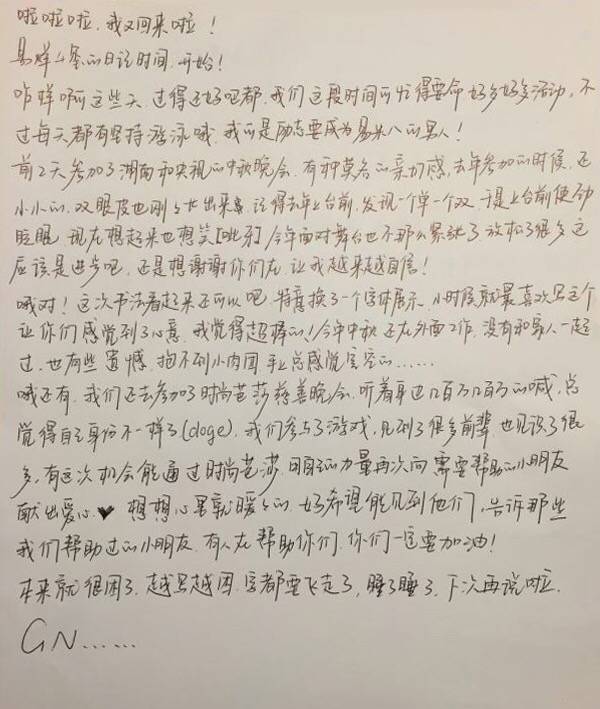 啦啦啦，我又回来啦！
易烊4条的日记时间，开始！
咋样啊这些天，过得还好吧都，我们这段时间可忙得要命好多好多活动，不
过每天都有坚持游泳哦，我可是励志要成为易米八的男人！
前2天参加了湖南和央视的中秋晚会，有种莫名的亲切感，去年参加的时候，还
小小的，双眼皮也刚长出来，记得去年上台前，发现一个单一个双，于是上台前使劲
眨眼，现在想起来也想笑[呲牙]今年面对舞台也不那么紧张了放松了很多这
应该是进步吧，还是想谢谢你们在，让我越来越自信！
哦对！这次书法看起来还可以吧，特意换了一个字体展示，小时候就最喜欢写这个
让你们感觉到了心意，我觉得超棒的！今年中秋还在外面工作，没有和家人一起
过，也有些遗憾，抱不到小肉团手上总感觉空空的……
哦还有，我们还去参加了时尚芭莎慈善晚会，听着身边几百万几百万的喊，总
觉得自己身份不一样了(doge)，我们参与了游戏，见到了很多前辈，也见识了很
多，有这次机会能通过时尚芭莎，明星的力量再次向需要帮助的小朋友
献出爱心♥想想心里就暖暖的，好希望能见到他们，告诉那些
我们帮助过的小朋友，有人在帮助你们，你们一定要加油！
本来就很困了，越写越困，字都要飞走了，睡了睡了，下次再说啦，
GN……